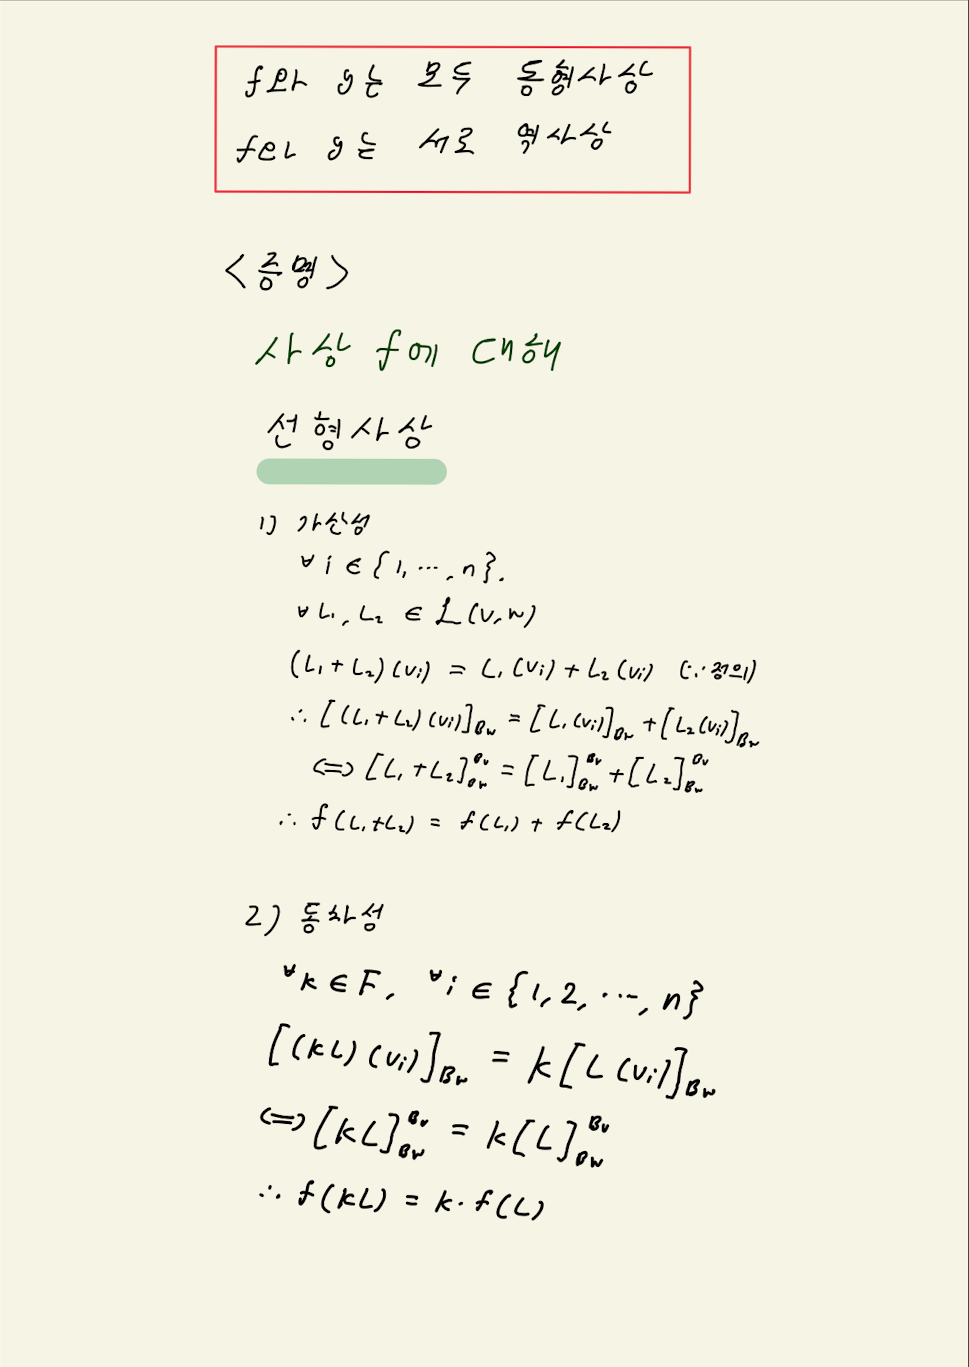 f와 g는 모두 동형사상
f와 g는 서로 역사상
<증명>
사상 f에 대해
선형사상
1) 가산성
∀i ∈ {1, ⋯, n}.
∀L₁, L₂ ∈ ℒ(V, W)
(L₁ + L₂)(vᵢ) = L₁(vᵢ) + L₂(vᵢ) (∵ 정의)
∴ [(L₁ + L₂)(vᵢ)]_Bw = [L₁(vᵢ)]_Bw + [L₂(vᵢ)]_Bw
⟺ [L₁ + L₂]^Bv_Bw = [L₁]^Bv_Bw + [L₂]^Bv_Bw
∴ f(L₁+L₂) = f(L₁) + f(L₂)
2) 동차성
∀k ∈ F, ∀i ∈ {1, 2, ⋯, n}
[(kL)(vᵢ)]_Bw = k[L(vᵢ)]_Bw
⟺ [kL]^Bv_Bw = k[L]^Bv_Bw
∴ f(kL) = k·f(L)